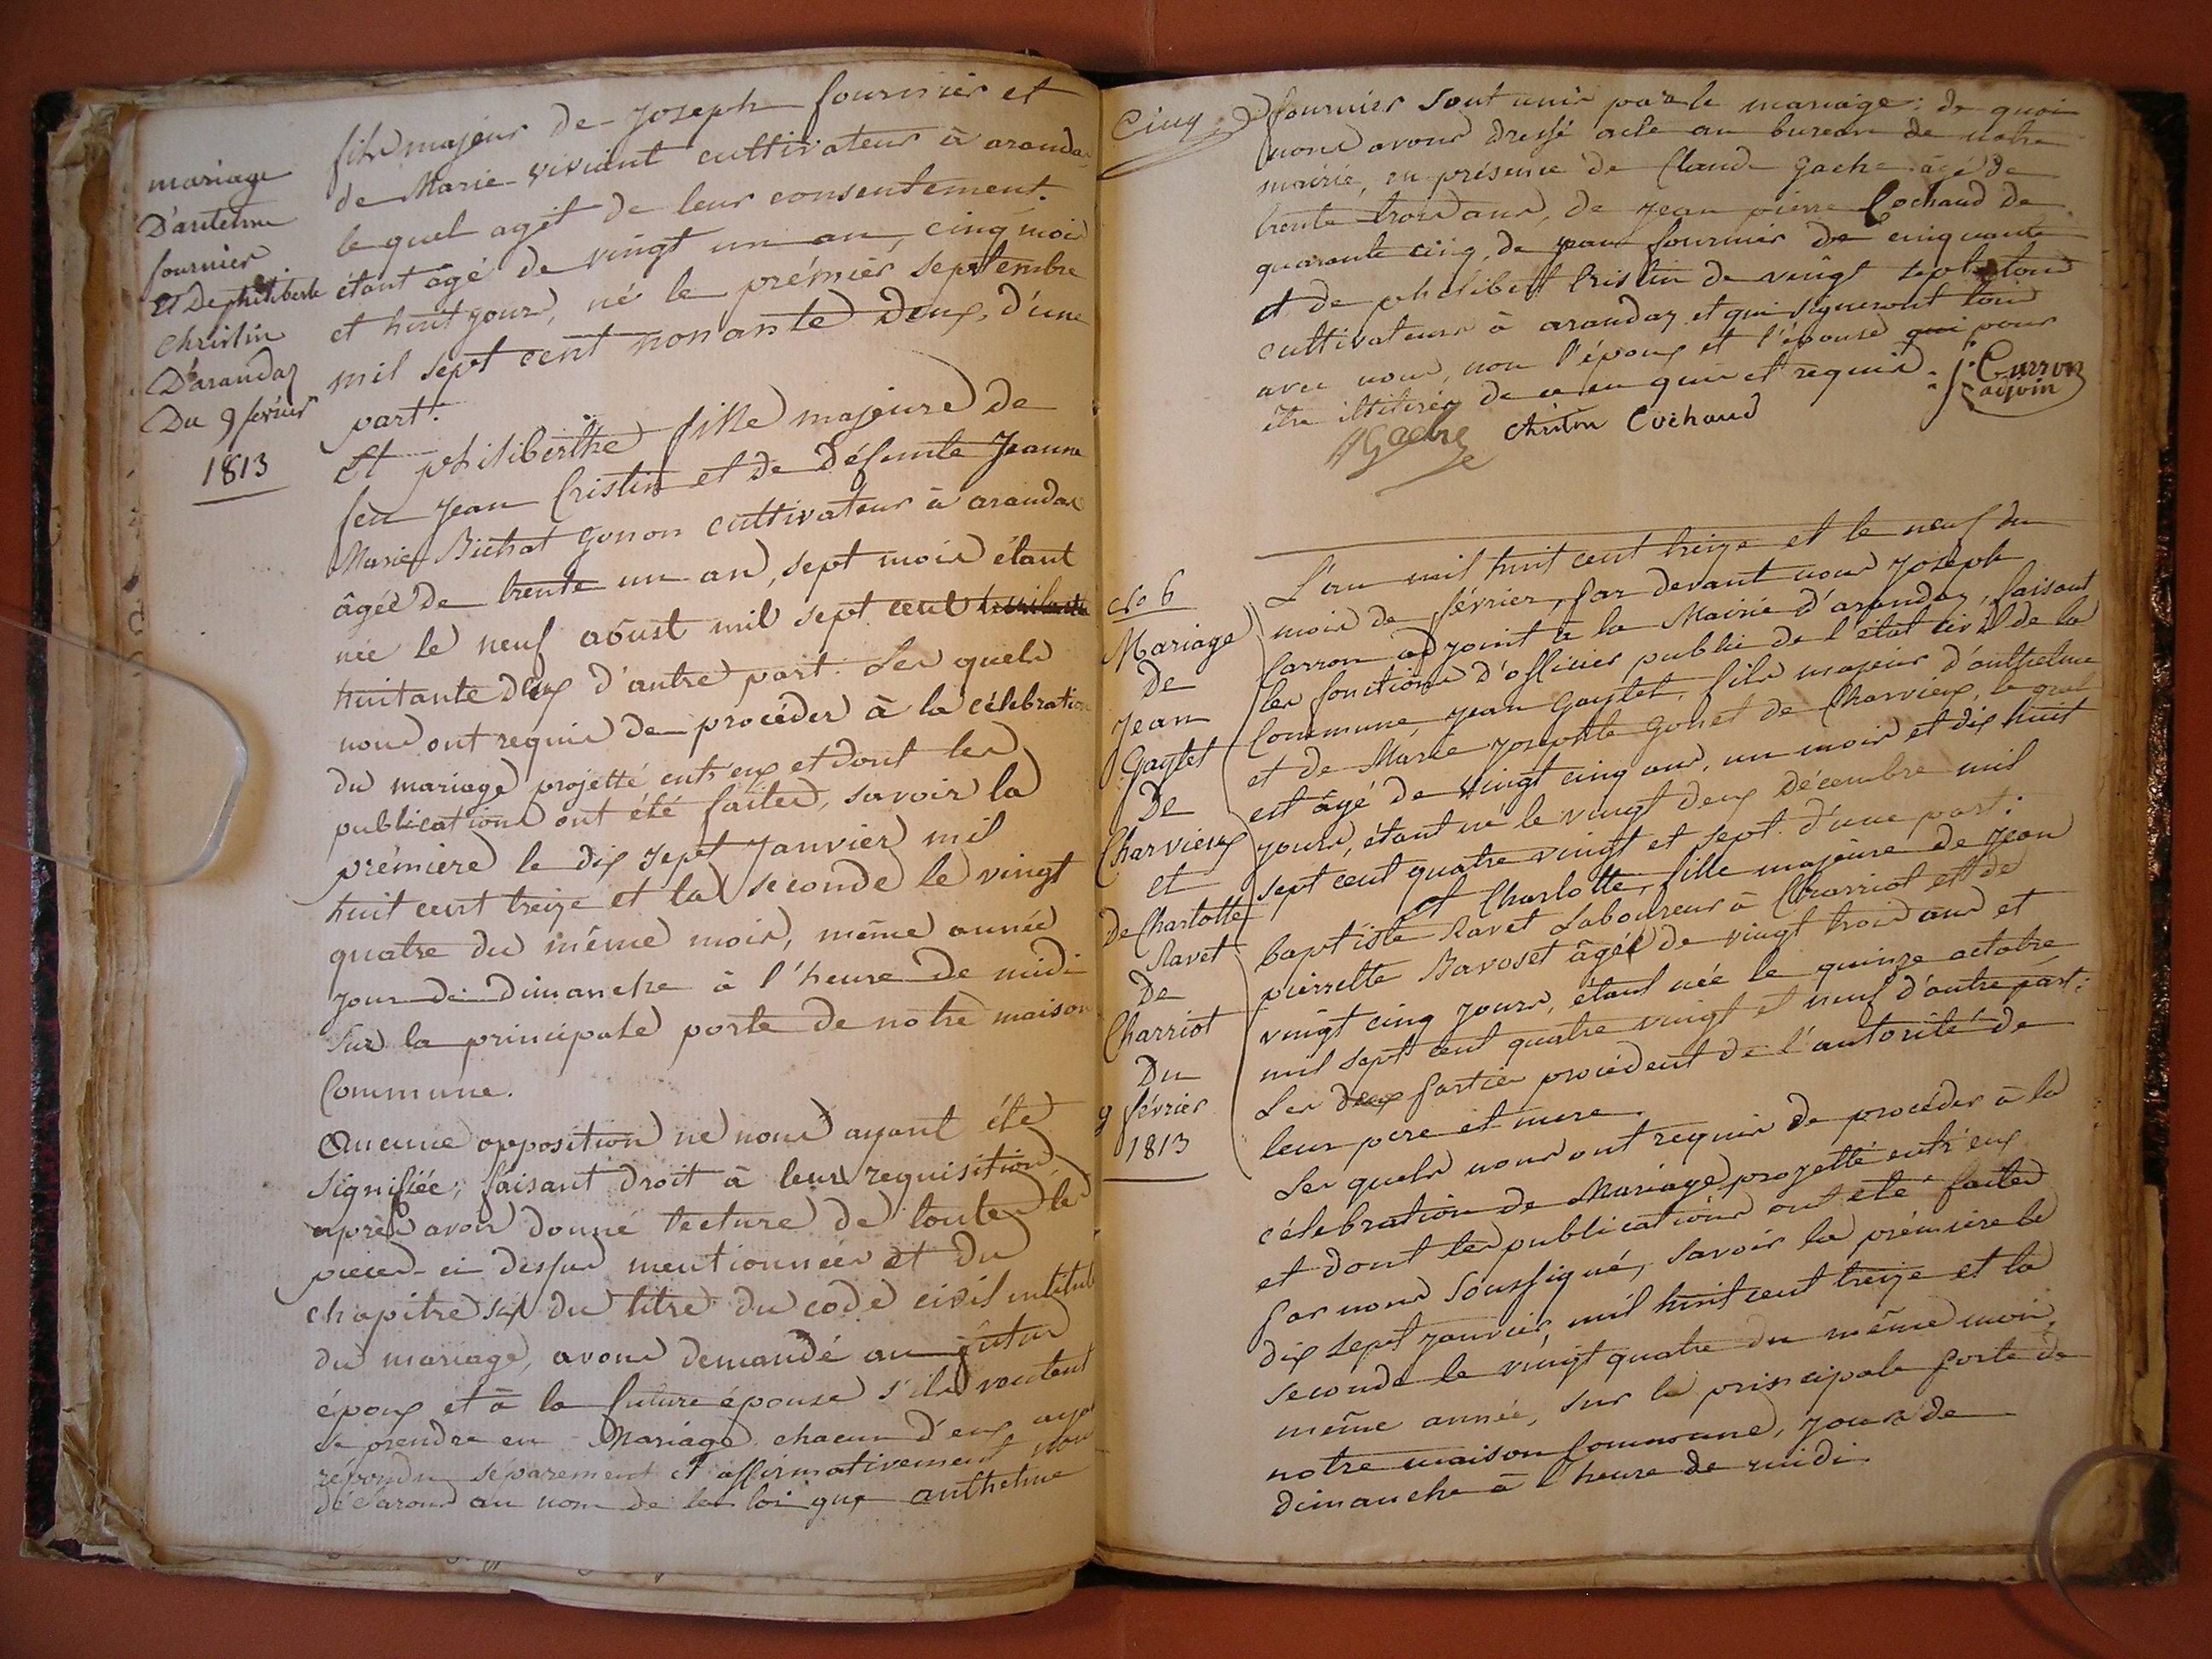 mariage
D'antelme
fournier
Et De philiberte
Christin
D'arandaz
Du 9 février
1813
fils majeur de Joseph fournier et
de Marie viviant cultivateur à arandaz
le quel agit de leur consentement.
étant âgé de vingt un an, cinq mois
et huit jours, né le prémier septembre
mil sept cent nonante deux, d'une
part.
Et philiberthe fille majeure de
feu Jean Cristin et de défunte Jeanne
Marie Bichat Gonon cultivateur à arandaz
âgée de trente un an, sept mois étant
née le neuf aoust mil sept cent
huitante deux d'autre part. Les quels
nous ont requis de procéder à la célébration
du mariage projetté entr'eux et dont les
publications ont été faites, savoir la
prémiere le dix sept Janvier mil
huit cent treize et la seconde le vingt
quatre du même mois, même année
jour de dimanche à l'heure de midi
sur la principale porte de notre maison
Commune.
Aucune opposition ne nous ayant été
signifiée; faisant droit à leur requisition
après avoir donné lecture de toutes les
pieces ci dessus mentionnées et du
chapitre six du titre du code civil intitulé
du mariage, avons demandé au futur
époux et à la future épouse s'ils veulent
se prendre en Mariage chacun d'eux ayant
répondu séparement et affirmativement nous
déclarons au nom de la loi que anthelme
Cinq
fournier sont unis par le mariage: de quoi
nous avons dressé acte au bureau de notre
mairie, en présence de Claude Gache âgé de
trente trois ans, de Jean pierre Cochaud de
quarante cinq, de jean fournier de cinquante
et de philibert Cristin de vingt sept tous
cultivateurs à arandaz et qui signeront tous
avec nous, non l'époux et l'épouse qui pour
être illitirés de ce enquis et requis.
J. Curron
adjoin
Gache Christin Cochaud
No 6
Mariage
De
Jean
Gaytet
De
Charvieux
et
De Charlotte
Ravet
De
Charriot
Du
9 février
1813
L'an mil huit cent treize et le neuf du
mois de février, par devant nous Joseph
Carron adjoint à la Mairie d'arandaz, faisant
les fonctions d'officier public de l'état civil de la
Commune, jean Gaytet, fils majeur d'anthelme
et de Marie Josephte Gonet de Charvieux, le quel
est âgé de vingt cinq ans, un mois et dix huit
jours, étant né le vingt deux décembre mil
sept cent quatre vingt et sept. d'une part;
Et Charlotte, fille majeure de Jean
baptiste Ravet Laboureur à Charriot et de
pierrette Bavoset âgée de vingt trois ans et
vingt cinq jours, étant née le quinze octobre
mil sept cent quatre vingt et neuf d'autre part;
Les deux parties procédent de l'autorité de
leur pere et mere.
Les quels nous ont requis de procéder à la
célébration de Mariage projetté entr'eux
et dont les publications ont été faites
par nous soussigné, savoir la prémiere le
dix sept janvier, mil huit cent treize et la
seconde le vingt quatre du même mois,
même année, sur la principale porte de
notre maison Commune, jour de
dimanche à l'heure de midi